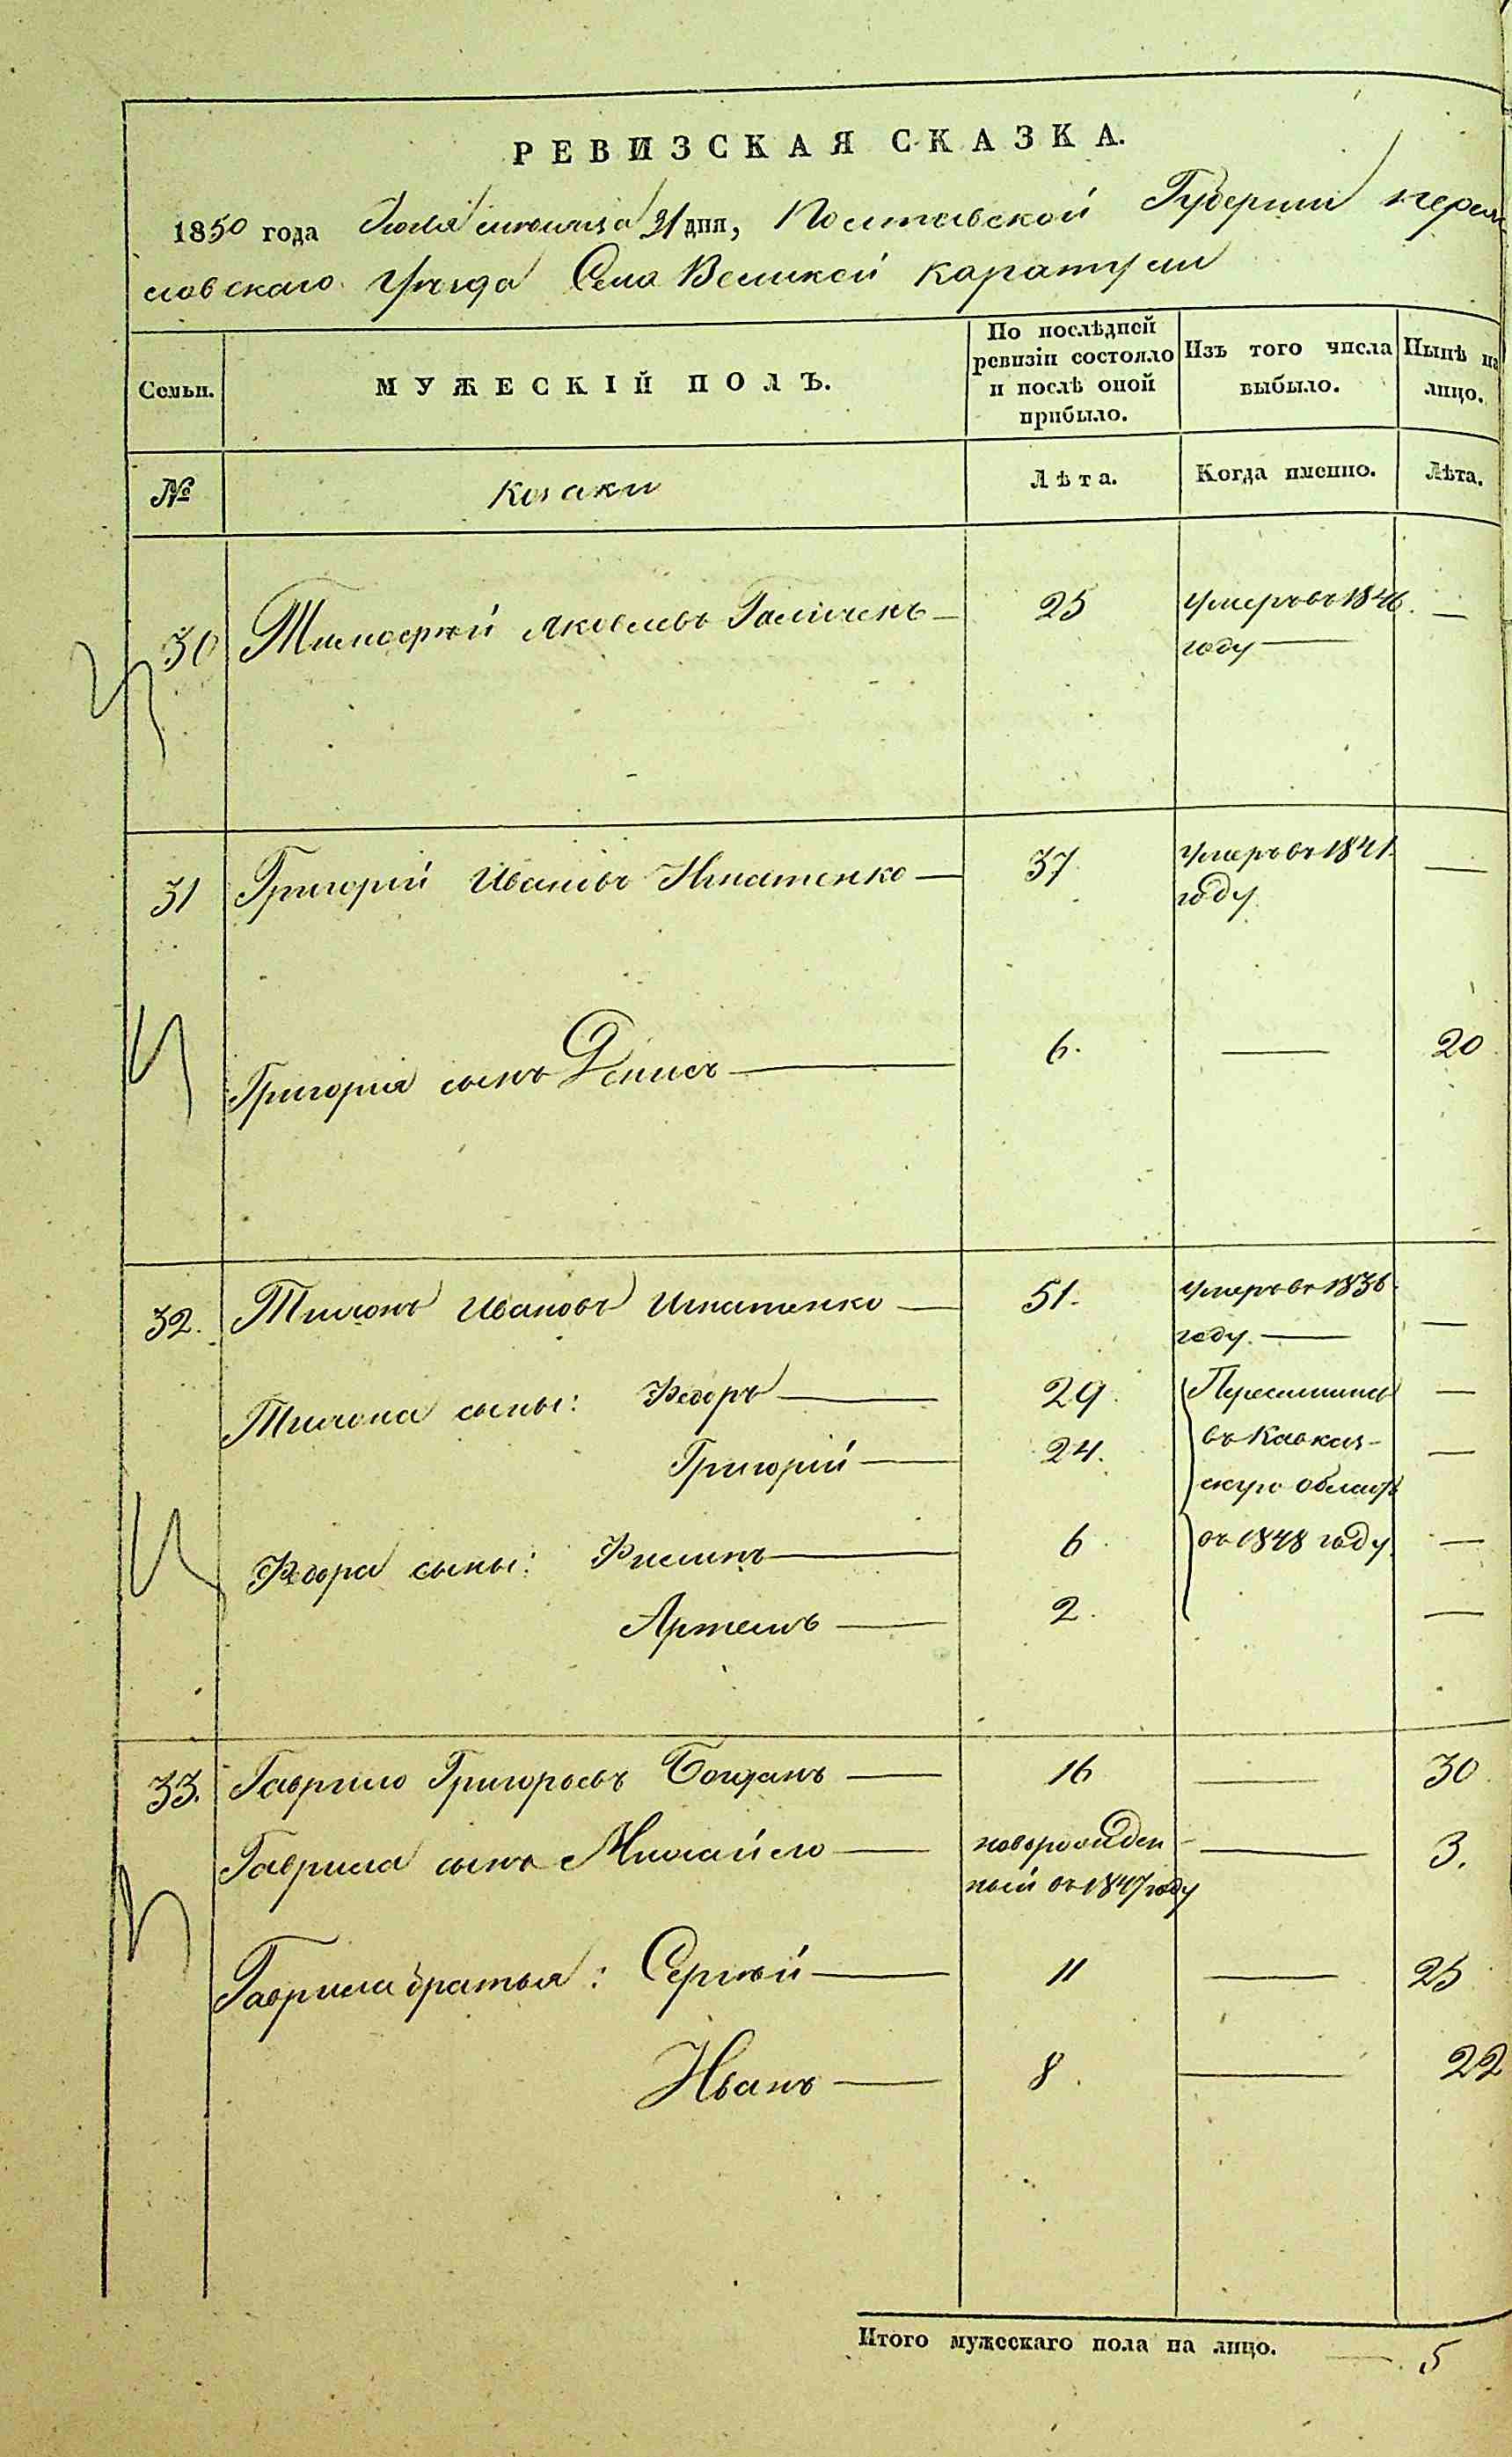 РЕВИЗСКАЯ СКАЗКА.
1850 года Іюля месяца 31 дня, Полтавской Губерніи Перея
славскаго Уѣзда Села Великой Каратули
Семьи.
МУЖЕСКІЙ ПОЛЪ.
По послѣдней
ревизіи состояло
и послѣ оной
прибыло.
Изъ того числа
выбыло.
Нынѣ на
лицо.
№
Козаки
Лѣта.
Когда именно.
Лѣта.
30 Тимофѣй Яковлевъ 25 Умеръ въ 1846 —
году —
31 Григорій Ивановъ Игнатенко — 37 Умеръ въ 1841 —
году
Григорія сынъ Денисъ — 6. — 20
32. Тихонъ Ивановъ Игнатенко — 51. Умеръ въ 1836 —
году. —
Тихона сыны: Федоръ — 29. Переселились —
въ Кавказ-
Григорій — 24. —
скую область
Федора сыны: Филипъ — 6 въ 1848 году. —
Артемъ — 2. —
33. Гаврило Григорьевъ Богданъ — 16 — 30
Гаврила сынъ Михайло — новорожден — 3.
ный въ 1847 году
Гаврила братья: Сергѣй — 11 — 25
Иванъ — 8. — 22
Итого мужескаго пола на лицо. — 5